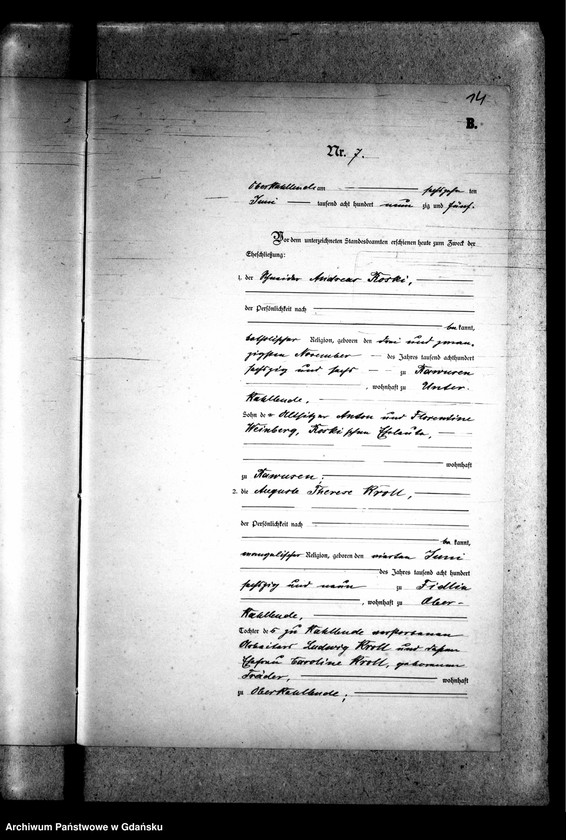 14
B.
Nr. 7.
Oberkahlbude am sechszehn ten
Juni tausend acht hundert neun zig und fünf.
Vor dem unterzeichneten Standesbeamten erschienen heute zum Zweck der
Eheschließung:
1. der Schneider Andreas Koski,
der Persönlichkeit nach
be kannt,
katholischer Religion, geboren den drei und zwan-
zigsten November des Jahres tausend achthundert
sechszig und sechs zu Kawuren
, wohnhaft zu Unter-
Kahlbude,
Sohn der Altsitzer Anton und Florentine
Weinberg, Koski'schen Eheleute,
wohnhaft
zu Kawuren;
2. die Auguste Therese Kroll,
der Persönlichkeit nach
be kannt,
evangelischer Religion, geboren den vierten Juni
des Jahres tausend acht hundert
sechszig und neun zu Fidlin
, wohnhaft zu Ober-
Kahlbude,
Tochter des zu Kahlbude verstorbenen
Arbeiters Ludwig Kroll und dessen
Ehefrau Caroline Kroll, geborenen
Träder, wohnhaft
zu Oberkahlbude;
Archiwum Państwowe w Gdańsku